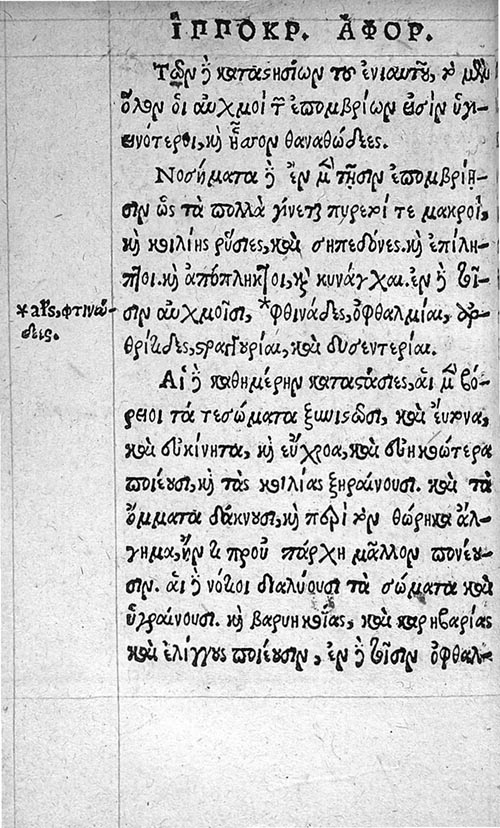 ἹΠΠΟΚΡ. ἈΦΟΡ.
Τῶν δὲ καταστησίων τοῦ ἐνιαυτοῦ, τὸ μὲν
ὅλον οἱ αὐχμοὶ τῶν ἐπομβρίων εἰσὶν ὑγι-
εινότεροι, καὶ ἧσσον θανατώδεες.
Νοσήματα δὲ ἐν μὲν τῇσιν ἐπομβρίῃ-
σιν ὡς τὰ πολλὰ γίνεται πυρετοί τε μακροὶ,
καὶ κοιλίης ῥύσιες, καὶ σηπεδόνες. καὶ ἐπίλη-
πτοι. καὶ ἀπόπληκτοι, καὶ κυνάγχαι. ἐν δὲ τοῖ-
σιν αὐχμοῖσι, *φθινάδες, ὀφθαλμίαι, ἀρ-
*αλλς, φτινώ-
δεις.
θρίτιδες, στραγγουρίαι, καὶ δυσεντερίαι.
Αἱ δὲ καθημέρην καταστάσιες, αἱ μὲν βό-
ρειοι τά τε σώματα ξυνιστῶσι, καὶ εὔτονα,
καὶ εὐκίνητα, καὶ εὔχροα, καὶ εὐηκοώτερα
ποιέουσι, καὶ τὰς κοιλίας ξηραίνουσι. καὶ τὰ
ὄμματα δάκνουσι, καὶ περὶ τὸν θώρηκα ἄλ-
γημα, ἤν τι προϋπάρχῃ μᾶλλον πονέου-
σιν. αἱ δὲ νότιοι διαλύουσι τὰ σώματα καὶ
ὑγραίνουσι. καὶ βαρυηκοΐας, καὶ καρηβαρίας
καὶ ἐλίγγους ποιέουσιν, ἐν δὲ τοῖσιν ὀφθαλ-